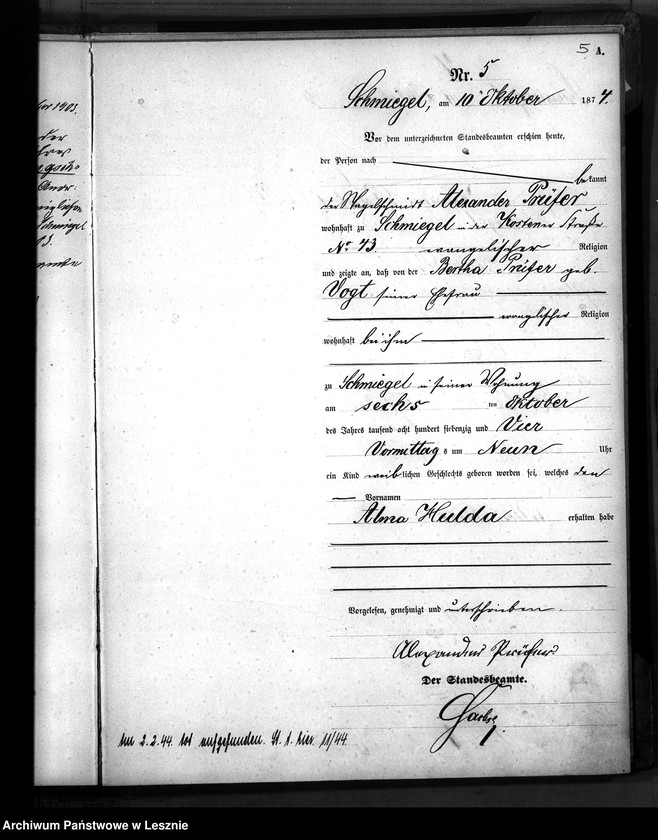 5 A.
Nr. 5
Schmiegel, am 10ⁿ Oktober 1874.
Vor dem unterzeichneten Standesbeamten erschien heute,
der Person nach
bekannt
der Nagelschmidt Alexander Prüfer
wohnhaft zu Schmiegel in der Kostener Straße
No 43. evangelischer Religion
und zeigte an, daß von der Bertha Prüfer geb.
Vogt seiner Ehefrau
evangelischer Religion
wohnhaft bei ihm
zu Schmiegel in seiner Wohnung
am sechs ten Oktober
des Jahres tausend acht hundert siebenzig und Vier
Vormittag s um Neun Uhr
ein Kind weiblichen Geschlechts geboren worden sei, welches den
Vornamen
Alma Hulda erhalten habe
Vorgelesen, genehmigt und unterschrieben.
Alexander Prüfer
Der Standesbeamte.
Am 2.2.44. tot aufgefunden. St. A. hier. 11/44.
Archiwum Państwowe w Lesznie